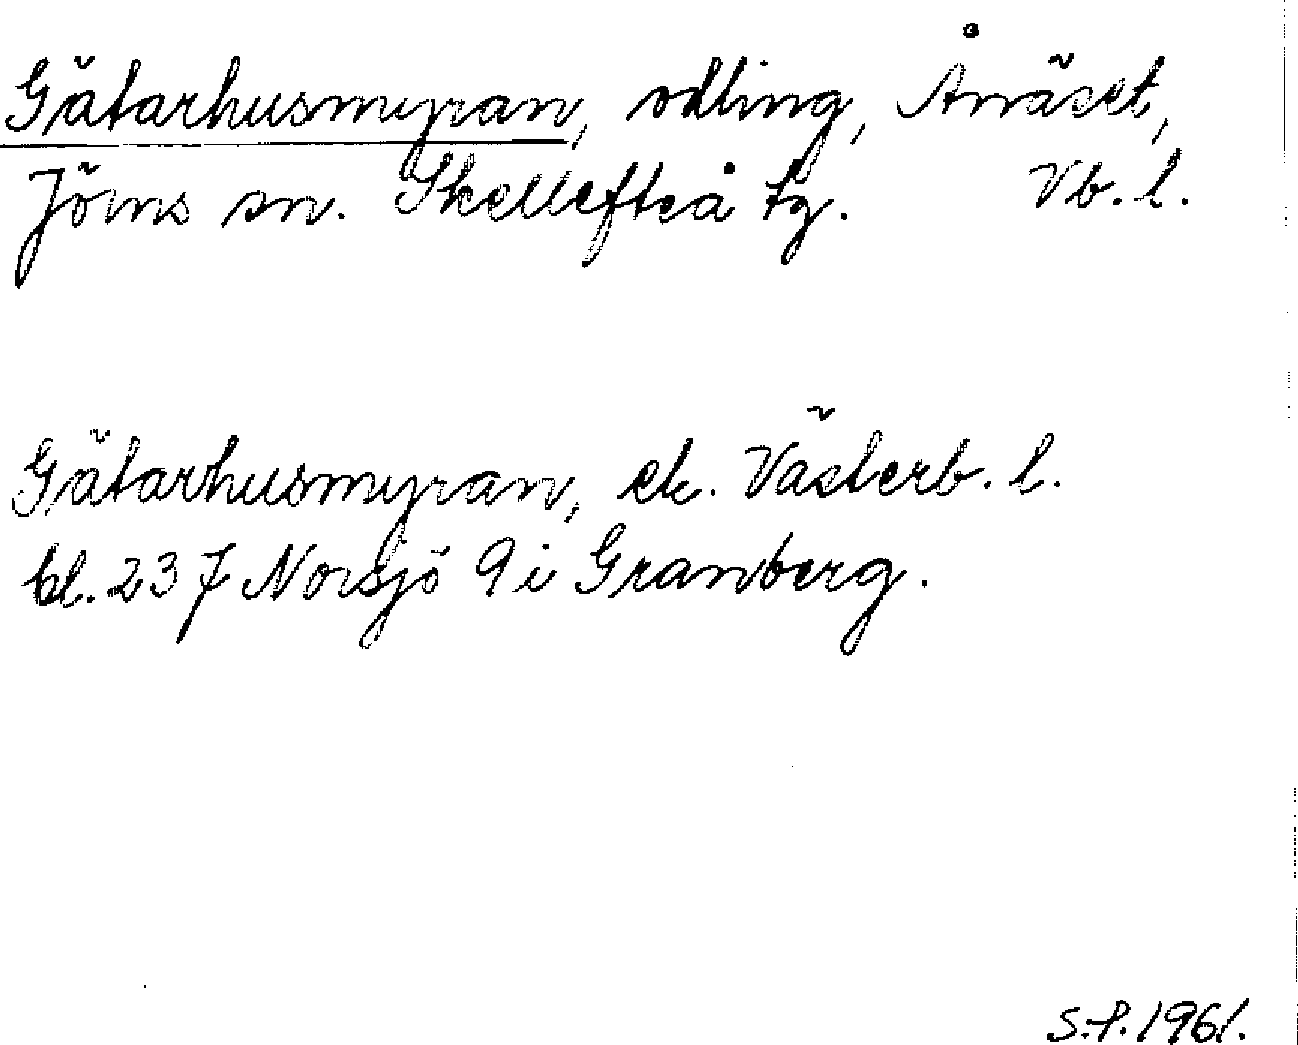 Gätarhusmyran, odling, Ånäset,
Jörns sn. Skellefteå tg. Vb. l.
Gätarhusmyran, ek. Västerb. l.
bl. 237 Norsjö 9 i Granberg.
S.P. 1961.